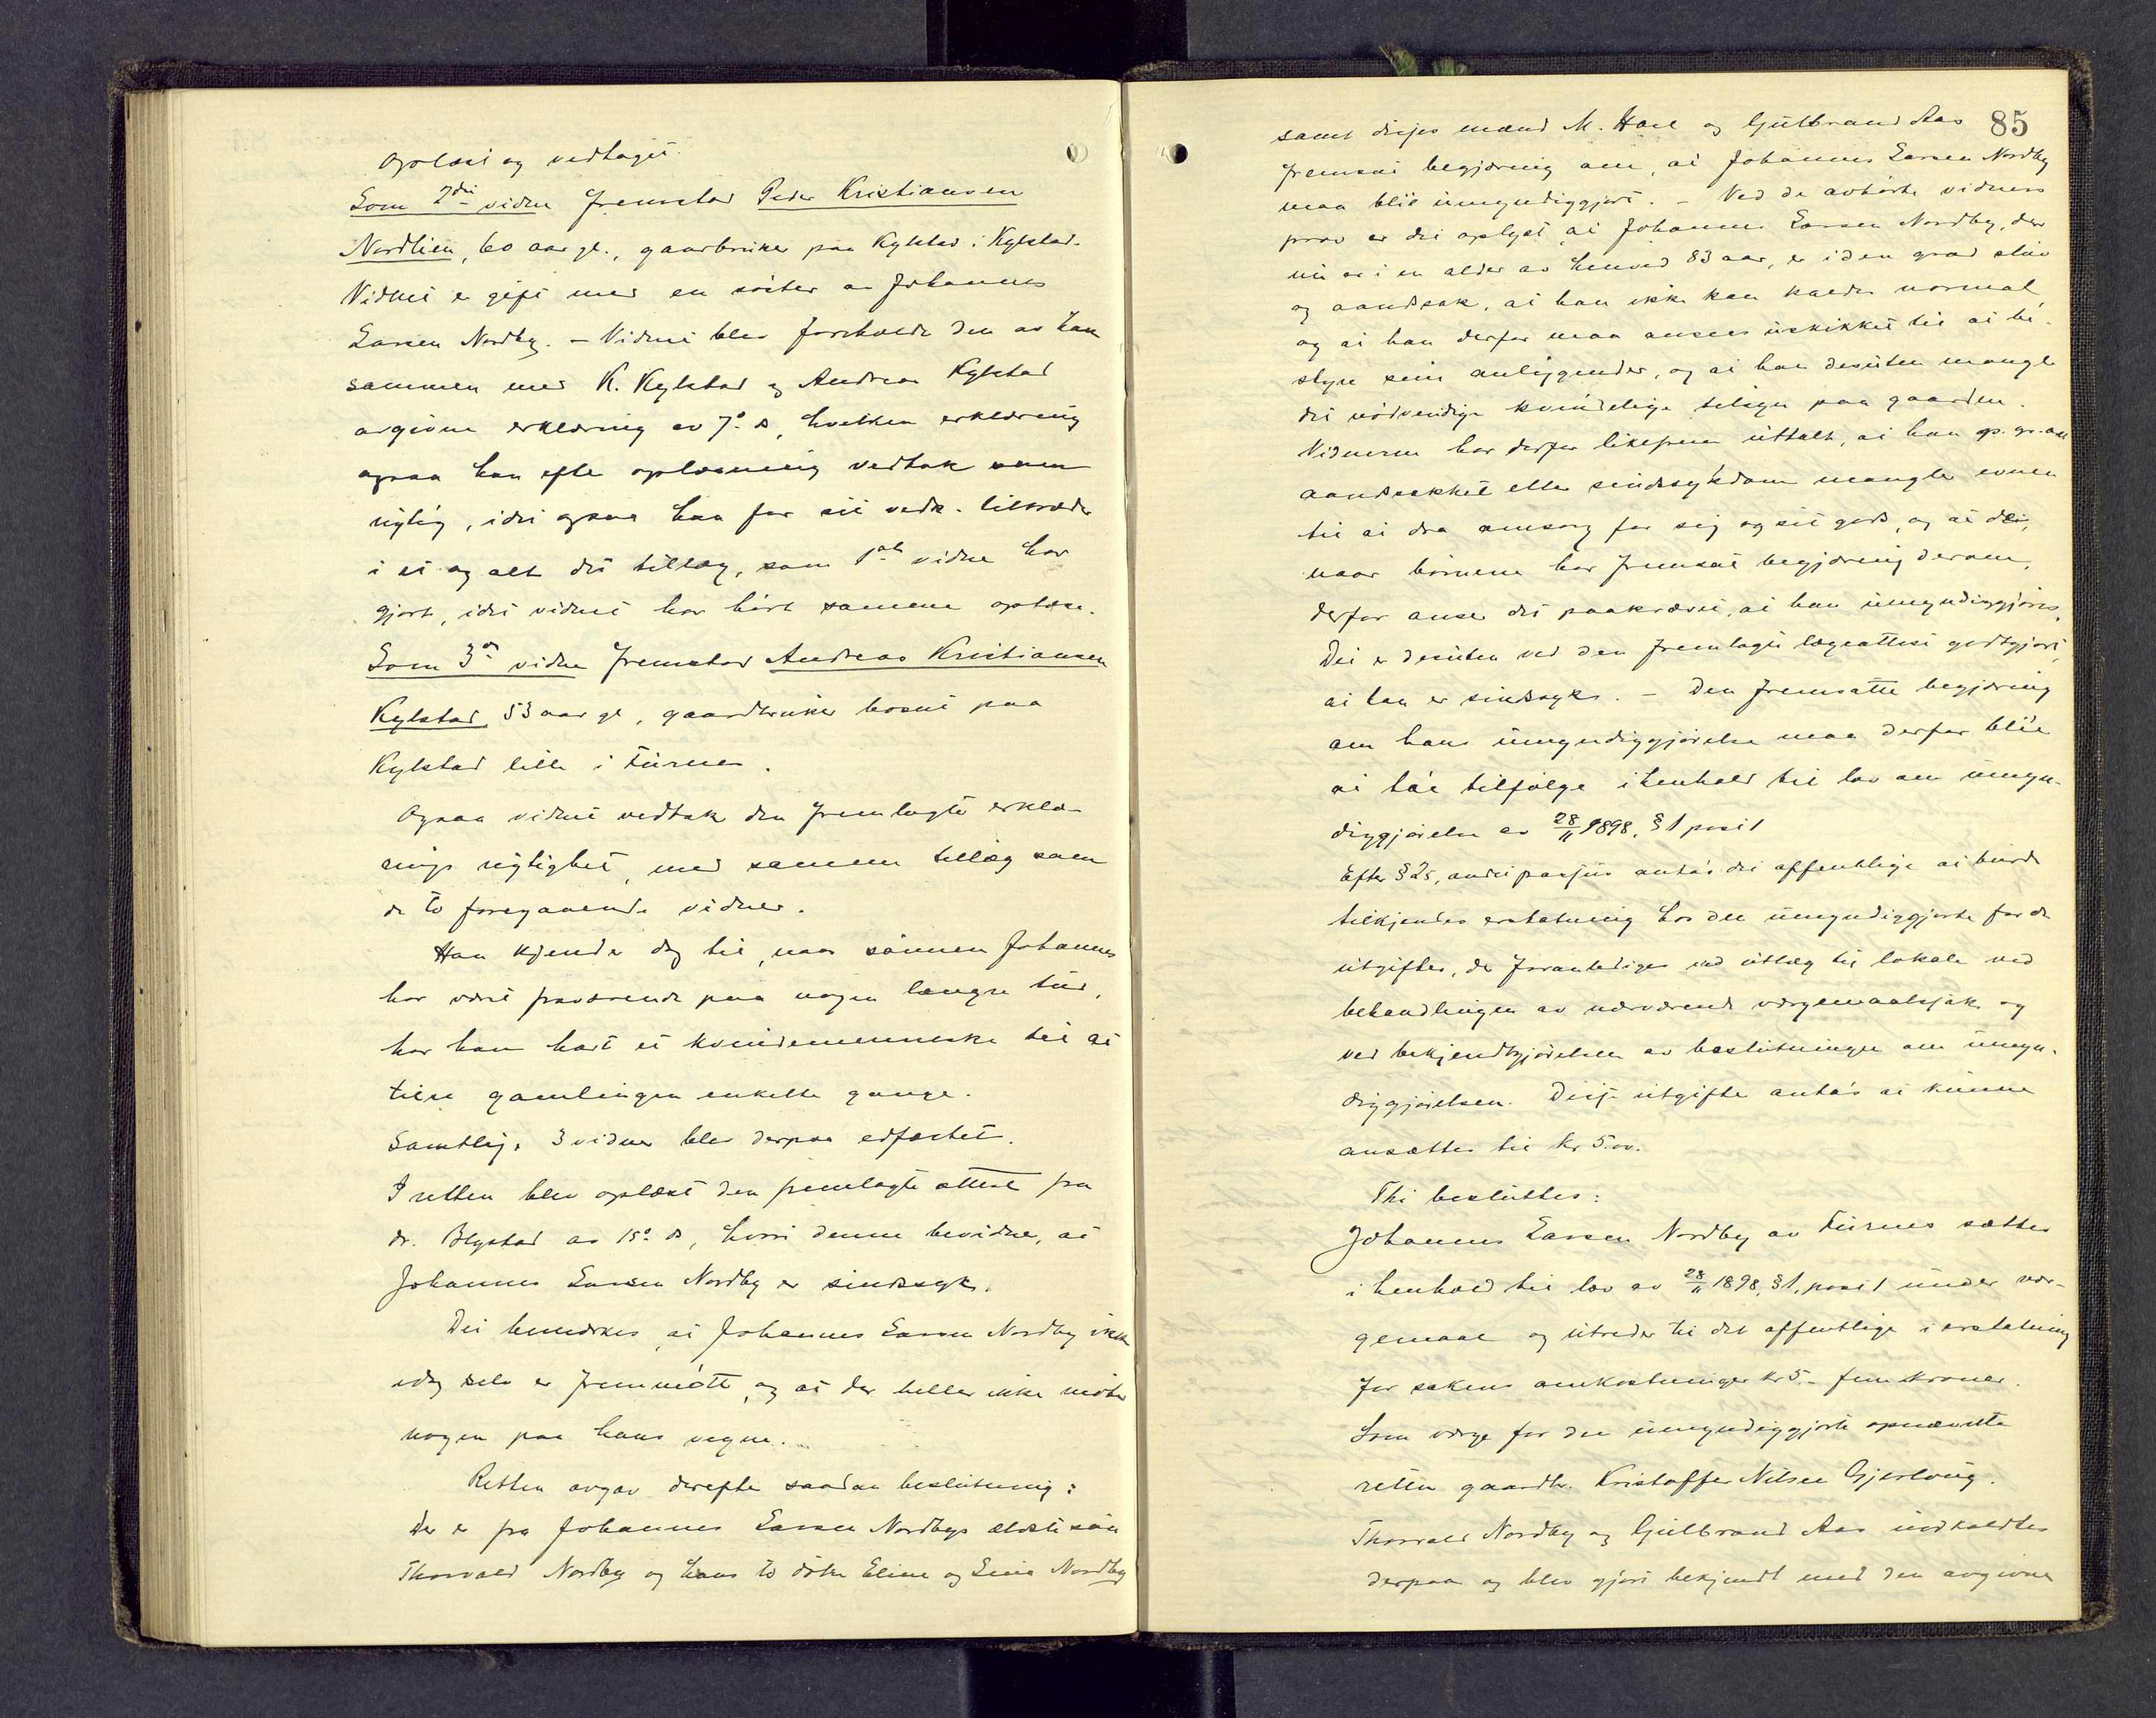 Oplæst og vedtaget.
Som 2det vidne fremstod Peder Kristiansen
Nordlien, 60 aar gl., gaardbruker paa Kylstad i Kylstad.
Vidnet er gift med en søster av Johannes
Larsen Nordby. – Vidnet blev foreholdt den av ham
sammen med K. Kylstad og Andreas Kylstad
avgivne erklæring av 7. ds, hvilken erklæring
ogsaa han efter oplæsning vedtok som
rigtig, idet ogsaa han for sit vedk. tiltræder
i et og alt det tillæg, som 1ste vidne har
gjort, idet vidnet har hørt samme oplæse.
Som 3die vidne fremstod Andreas Kristiansen
Kylstad 53 aar gl, gaardbruker bosat paa
Kylstad lille i Furnes.
Ogsaa vidnet vedtok den fremlagte erklæ-
rings rigtighet, med samme tillæg som
de to foregaaende vidner.
Han kjender dog til, naar sønnen Johannes
har været fraværende paa nogen længre tid,
har han havt et kvindemenneske til at
tilse gamlingen enkelte gange.
Samtlige 3 vidner blev derpaa edfæstet.
I retten blev oplæst den fremlagte attest fra
dr. Blystad av 15. ds, hvori denne bevidner, at
Johannes Larsen Nordby er sindssyk.
Det bemerkes, at Johannes Larsen Nordby ikke
idag selv er fremmøtt, og at der heller ikke møter
nogen paa hans vegne.
Retten avgav derefter saadan beslutning:
Der er fra Johannes Larsen Nordbys ældste søn
Thorvald Nordby og hans to døtre Eline og Lina Nordby
85
samt disses mænd M. Hoel og Gulbrand Aas
fremsat begjæring om, at Johannes Larsen Nordby
maa bli umyndiggjort. – Ved de avhørte vidners
prov er det oplyst at Johannes Larsen Nordby, der
nu er i en alder av henved 83 aar, er i den grad sløv
og aandssvak, at han ikke kan kaldes normal,
og at han derfor maa ansees uskikket til at be-
styre sine anliggender, og at han desuten mangler
det nødvendige kvindelige tilsyn paa gaarden.
Vidnerne har derfor likefrem uttalt, at han p. gr. av
aandssvakhet eller sindssykdom mangler evnen
til at dra omsorg for sig og sit gods, og at de,
naar børnene har fremsat begjæring derom,
derfor anser det paakrævet, at han umyndiggjøres.
Det er desuten ved den fremlagte lægeattest godtgjort,
at han er sindssyk. – Den fremsatte begjæring
om hans umyndiggjørelse maa derfor bli
at ta tilfølge i henhold til lov om umyn-
diggjørelse av 28/11 1898, § 1 post 1
Efter § 25, andet passus antas det offentlige at burde
tilkjendes erstatning hos den umyndiggjorte for de
utgifter, der foranlediges ved utlæg til lokale ved
behandlingen av nærværende værgemaalssak og
ved bekjendtgjørelsen av beslutningen om umyn-
diggjørelsen. Disse utgifter antas at kunne
ansættes til kr 5.00.
Thi besluttes:
Johannes Larsen Nordby av Furnes sættes
i henhold til lov av 28/11 1898, § 1, post 1 under vær-
gemaal og utreder til det offentlige i erstatning
for sakens omkostninger kr 5.– fem kroner.
Som værge for den umyndiggjorte opnævnte
retten gaardbr. Kristoffer Nilsen Gjerlaug.
Thorvald Nordby og Gulbrand Aas indkaldtes
derpaa og blev gjort bekjendt med den avgivne